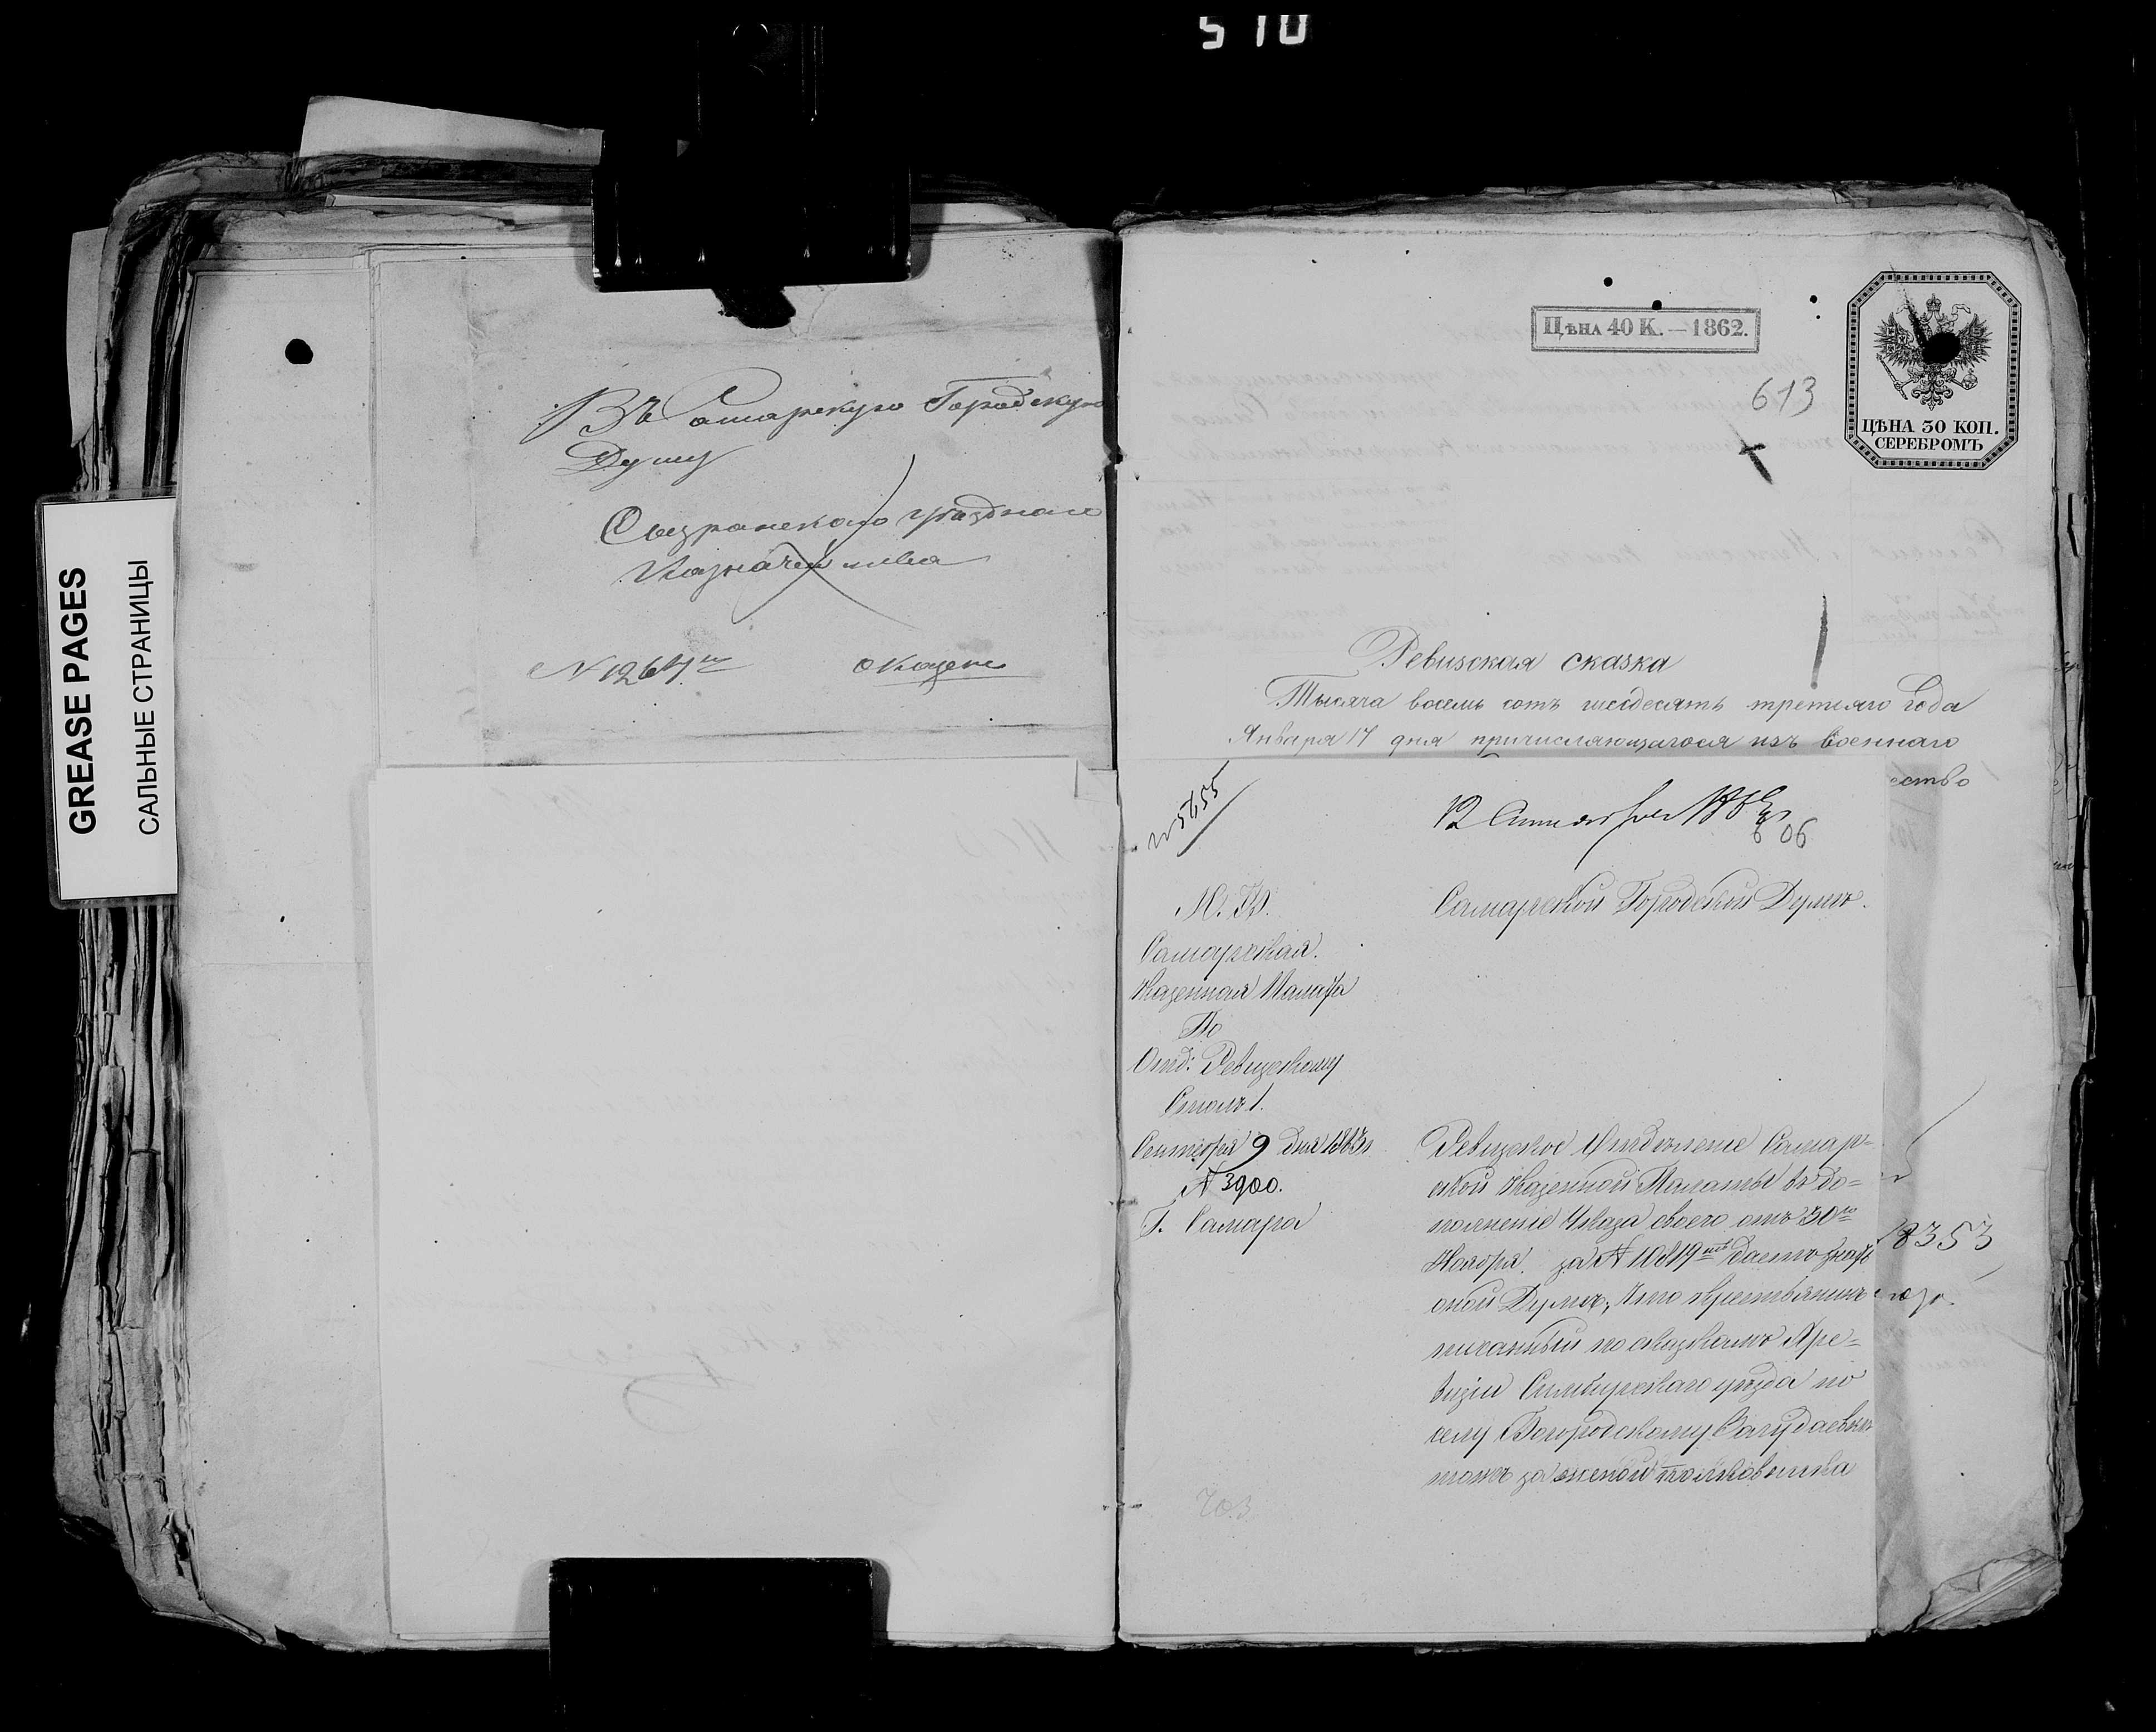 510
GREASE PAGES
САЛЬНЫЕ СТРАНИЦЫ
Въ Самарскую Городскую
Думу
Сызранскаго уѣзднаго
Казначейства
N 1264
о казен
Цѣна 40 К. — 1862.
613
ЦѢНА 30 КОП.
СЕРЕБРОМЪ
Ревизская сказка
Тысяча восемь сотъ шесдесятъ третьяго года
Января 17 дня причисляющагося изъ военнаго
ество
N 5655
12 Сентября 1863
606
М. Ф.
Самарская
Казенная Палата
По
Отд: Ревизскому
Столъ 1.
Сентября 9 дня 1863 г.
N 3900.
Г. Самара
Самарской Городской Думѣ.
Ревизское Отдѣленіе Самар=
ской Казенной Палаты въ до=
полненіе Указа своего отъ 30го
Ноября за N 10819 даетъ знать
оной Думѣ, что крестьянинъ
писанный по сказкамъ X ре=
визіи Симбирскаго уѣзда по
селу Богородскому
тожъ за женой полковника
8353
703